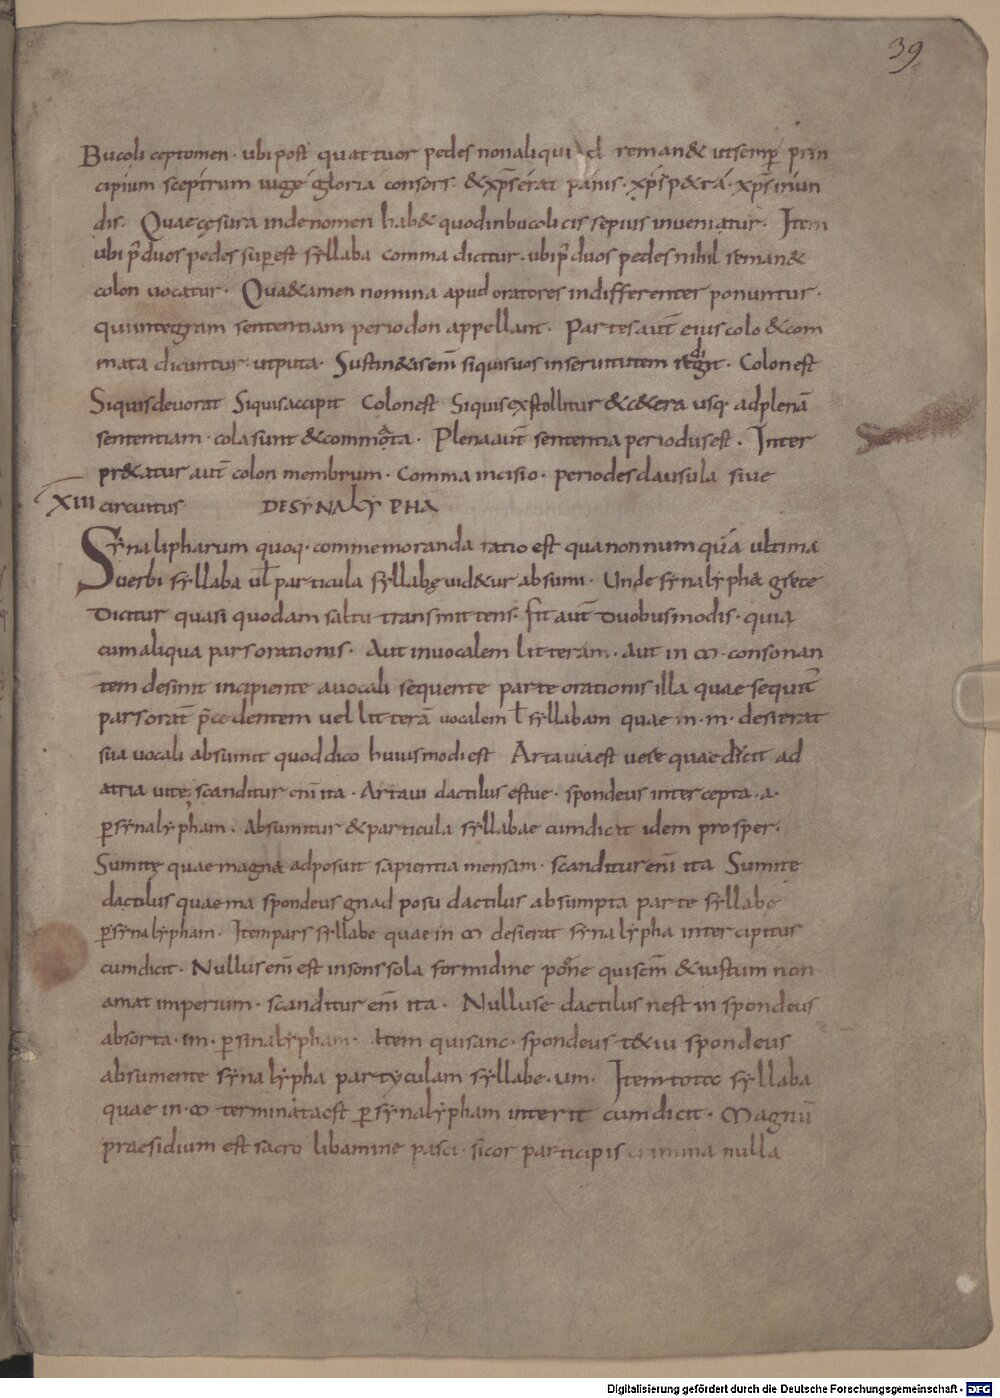 39
Bucoli ceptomen · ubi post quattuor pedes non aliqui d reman& ut semp̄ prin
cipium sceptrum iuge gloria consors · & xp̄s erat panis · xp̄s p&ra · xp̄s in un
dis · Quae cęsura inde nomen hab& quod in bucolicis sepius inueniatur · Item
ubi p̄ duos pedes sup̄est syllaba comma dicitur · ubi p̄ duos pedes nihil reman&
colon uocatur · Quae tamen nomina apud oratores indifferenter ponuntur ·
qui integram sententiam periodon appellant · Partes aut̄ eius colo & com
mata dicuntur · ut puta · Sustin&is eni siquis uos in seruitutem redigit · Colon est
Siquis deuorat Siquis accipit Colon est Siquis extollitur & c&era usq· ad plenā
sententiam · cola sunt & commata · Plena aut̄ sententia periodus est · Inter
pr&atur aut̄ colon membrum · Comma incisio · periodes clausula siue
XIII circuitus DE SYNALYPHA
Synalipharum quoq· commemoranda ratio est qua non numquā ultima
uerbi syllaba ul̄ particula syllabę uid&ur absumi · Unde synalypha grece
Dicitur quasi quodam saltu transmittens · fit aut̄ duobus modis · quia
cum aliqua pars orationis · Aut in uocalem litteram · aut in m · consonan
tem desinit incipiente a uocali sequente parte orationis illa quae sequit̄
pars orat̄ p̄cedentem uel litterā uocalem l̄ syllabam quae in · m · desierat
sua uocali absumit quod dico huiusmodi est Arta uia est uere quae ducit ad
atria uite; scanditur eni ita · Artaui dactilus estue · spondeus intercepta · a ·
p̄ synalypham · Absumitur & particula syllabae cum dicit idem prosper ·
Sumite quae magna adposuit sapientia mensam · scanditur eni ita Sumite
dactilus quae ma spondeus gnad posu dactilus absumpta parte syllabę
p̄ synalypham · Item pars syllabe quae in m desierat synalypha intercipitur
cum dicit · Nullus eni est insons sola formidine poȩne qui scm̄ & iustum non
amat imperium · scanditur eni ita · Nulluse dactilus nest in spondeus
absorta · im · p̄ sinalypham · Item qui sanc · spondeus t& iu spondeus
absumente synalypha partyculam syllabe · um · Item tota syllaba
quae in · m terminata est p̄ synalypham interit cum dicit · Magnū
praesidium est sacro libamine pasci · sicor participis crimina nulla
Digitalisierung gefördert durch die Deutsche Forschungsgemeinschaft - DFG